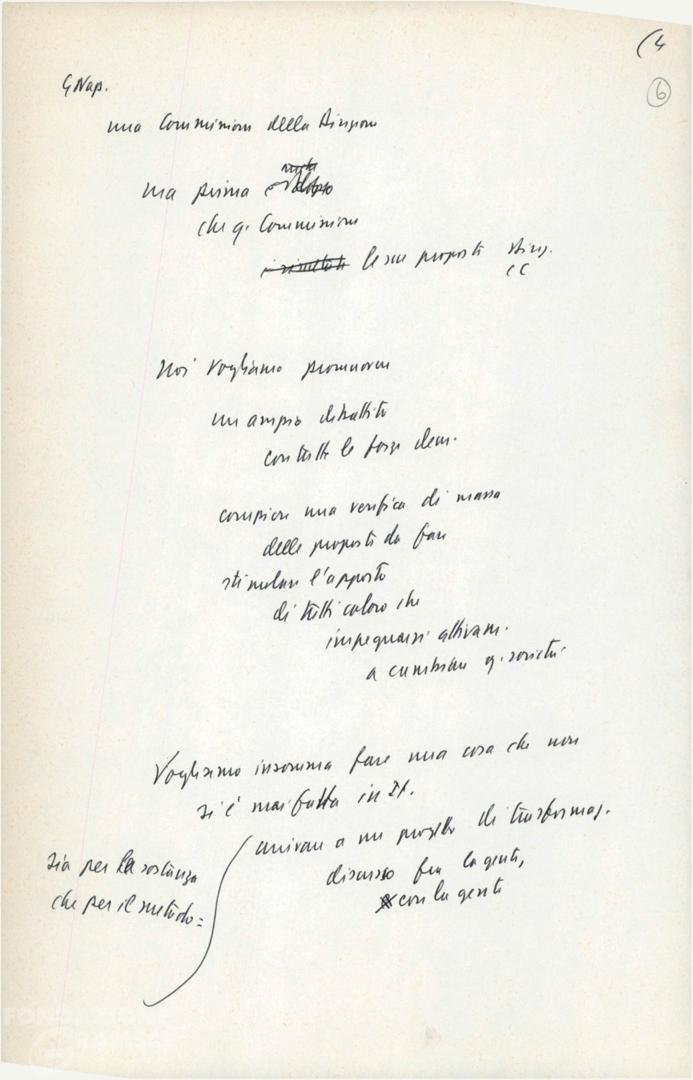 (4
6
G Nap.
una Commissione della Direzione
ma prima
che q. Commissione
le sue proposte
CC
Noi vogliamo promuovere
un ampio dibattito
con tutte le forze dem.
compiere una verifica di massa
delle proposte da fare
stimolare l'apporto
di tutti coloro che
impegnarsi attivam.
a cambiare q. società
Vogliamo insomma fare una cosa che non
si è mai fatta in It.
sia per la sostanza
che per il metodo:
arrivare a un progetto di trasformaz.
discusso fra la gente,
con la gente
FONDAZIONE